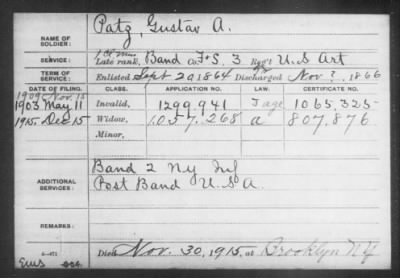 NAME OF SOLDIER: Patz, Gustav A.
SERVICE: Late rank, 1 Cl Mus Band Co. F+S. 3 Reg't U.S Art
TERM OF SERVICE: Enlisted Sept 20 1864, Discharged Nov ?, 1866
DATE OF FILING. CLASS. APPLICATION NO. LAW. CERTIFICATE NO.
1909 Nov. 15
1903 May 11 Invalid, 1299,941 J age 1065,325
1915 Dec 15 Widow, 1057,268 a 807,876
Minor,
ADDITIONAL SERVICES: Band 2 Ny Inf
Post Band U.S.A.
REMARKS:
Died Nov. 30, 1915, at Brooklyn NY